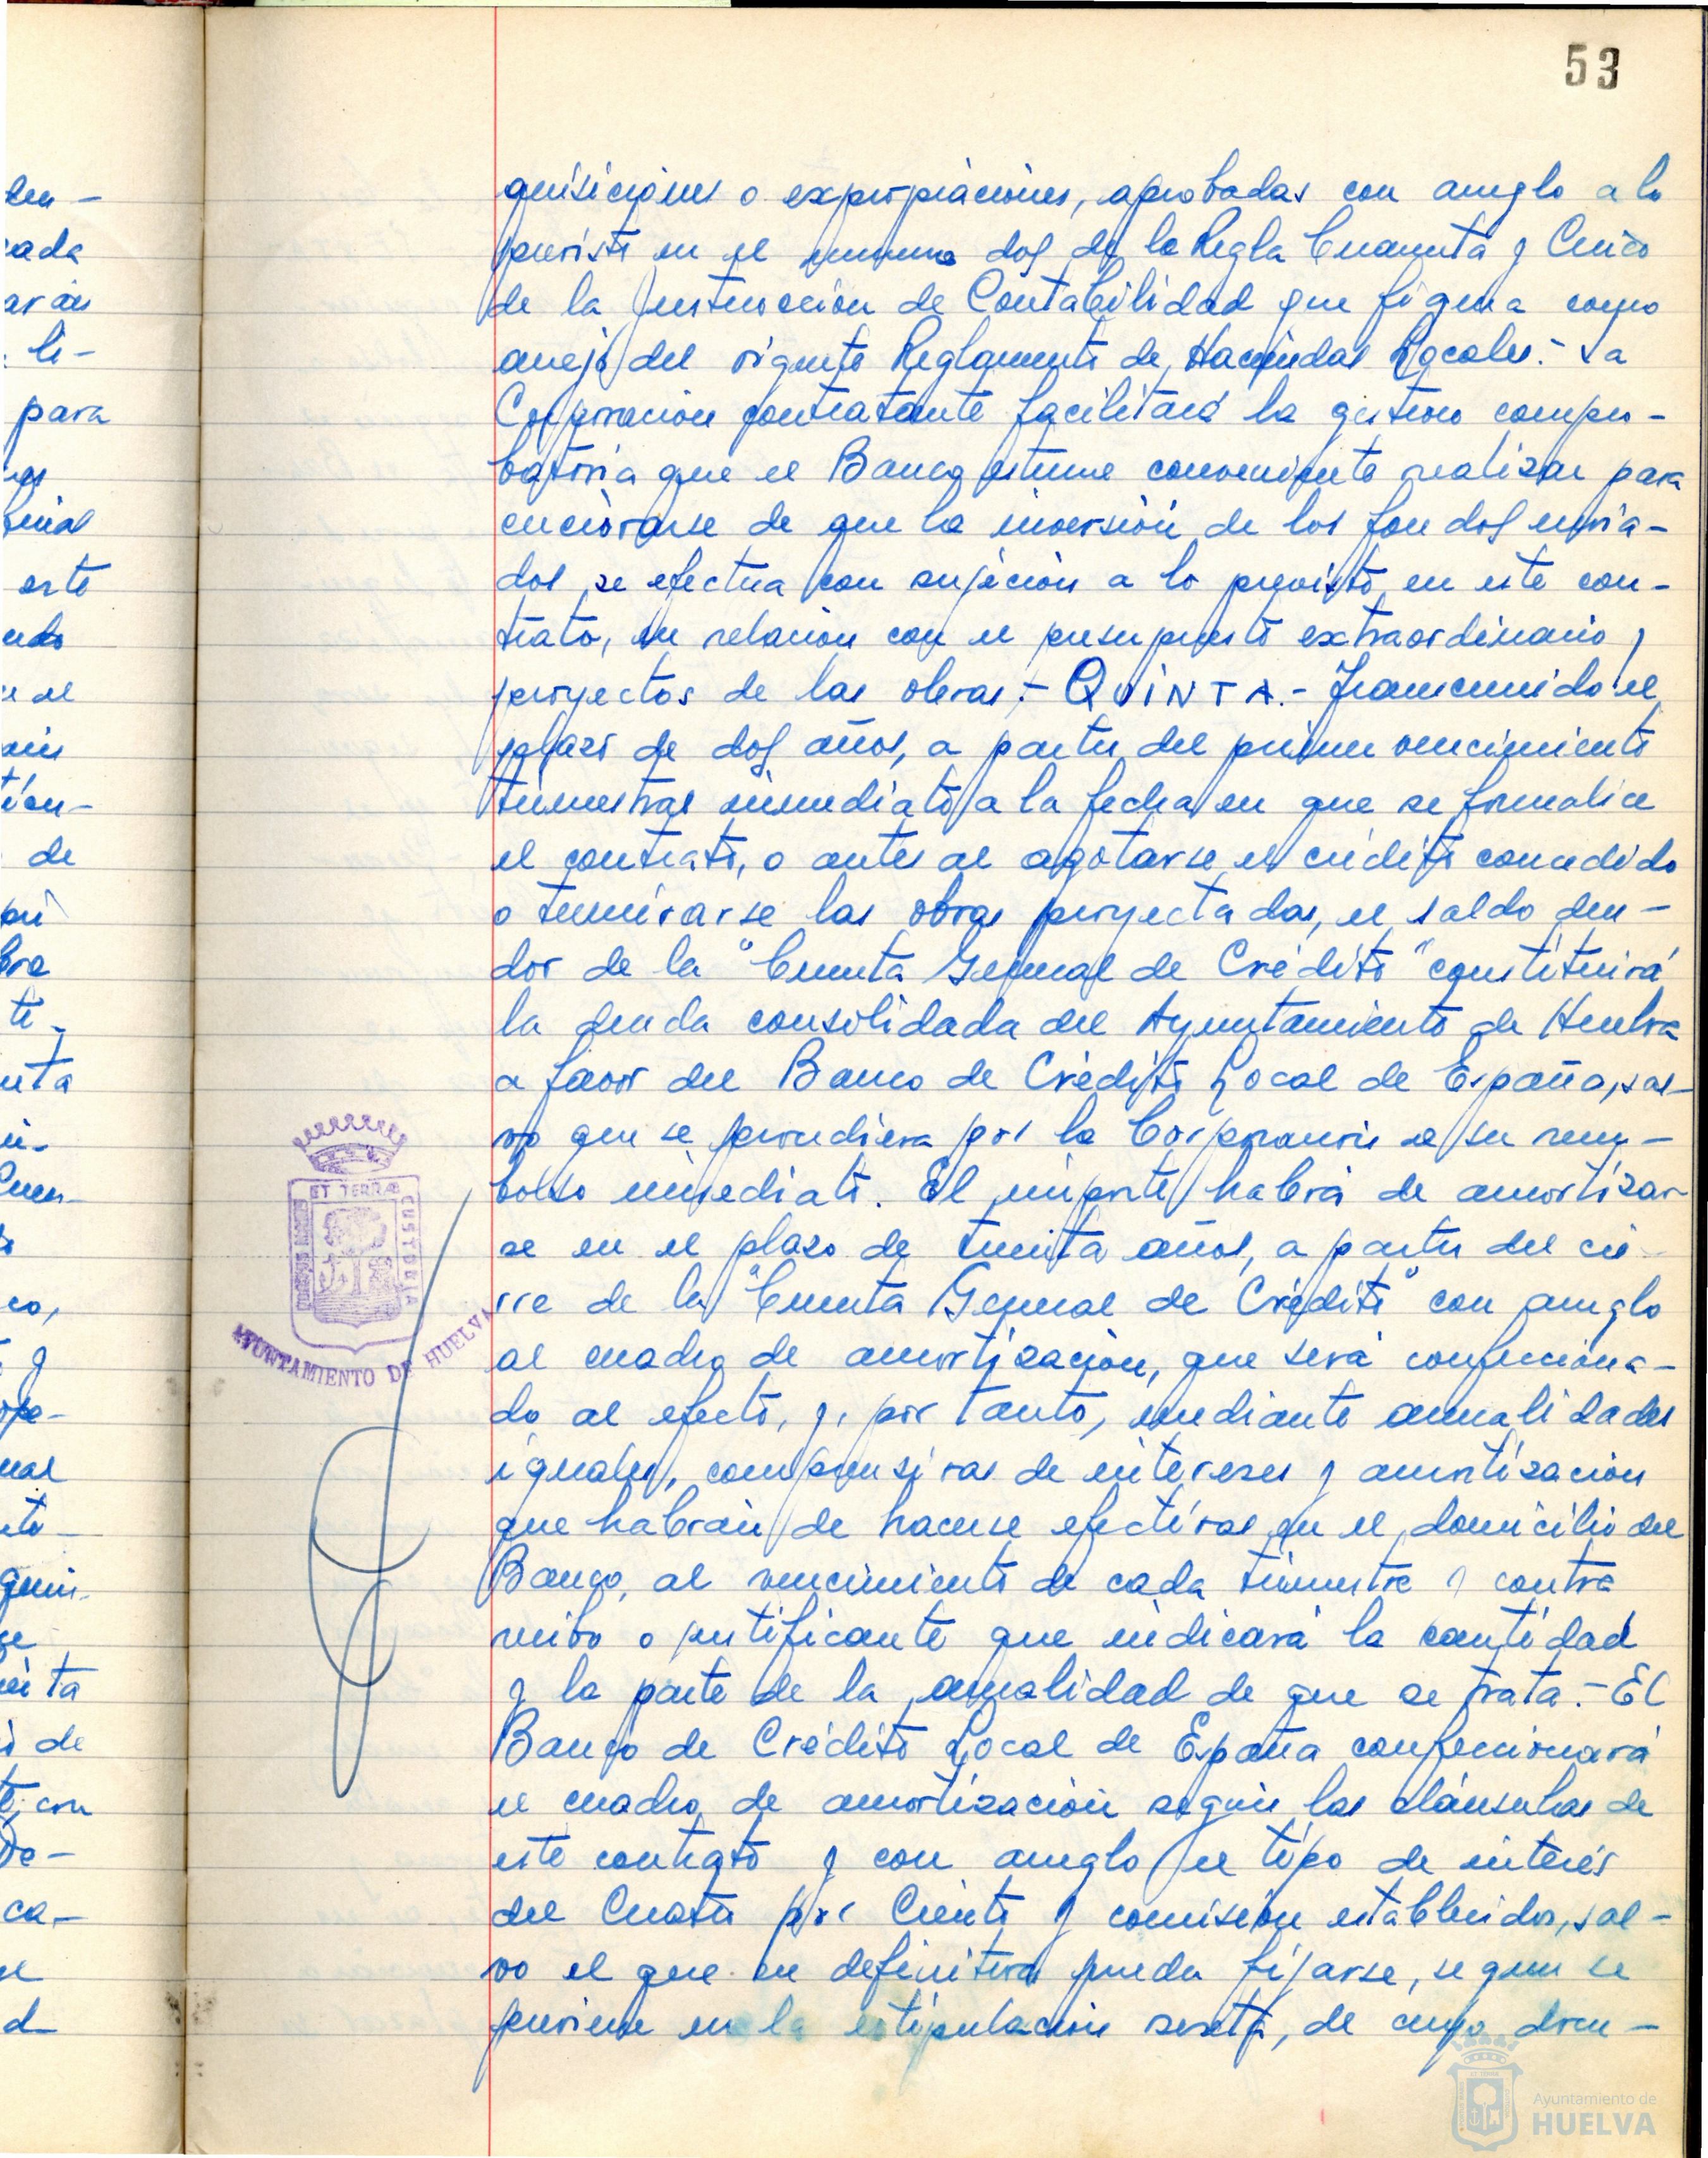 53
quisiciones o expropiaciones, aprobadas con arreglo a lo
previsto en el numero dos de la Regla Cuarenta y Cinco
de la Instrucción de Contabilidad que figura como
anejo del vigente Reglamento de Haciendas Locales.- La
Corporación contratante facilitará la gestion compro-
batoria que el Banco estime conveniente realizar para
cerciorarse de que la inversión de los fondos envia-
dos se efectua con sujeción a lo previsto en este con-
trato, en relacion con el presupuesto extraordinario y
proyectos de las obras.- QUINTA.- Transcurrido el
plazo de dos años, a partir del primer vencimiento
trimestral inmediato a la fecha en que se formalice
el contrato, o antes al agotarse el crédito concedido
o terminarse las obras proyectadas, el saldo deu-
dor de la "Cuenta General de Crédito" constituirá
la deuda consolidada del Ayuntamiento de Huelva
a favor del Banco de Crédito Local de España, sal-
vo que se procediera por la Corporación al su reem-
bolso inmediato. El importe habrá de amortizar
se en el plazo de treinta años, a partir del cie-
rre de la "Cuenta General de Crédito" con arreglo
al cuadro de amortización, que será confecciona-
do al efecto, y, por tanto, mediante anualidades
iguales, comprensivas de intereses y amortización
que habrán de hacerse efectivas en el domicilio del
Banco, al vencimiento de cada trimestre y contra
recibo o justificante que indicará la cantidad
y la parte de la anualidad de que se trata.- El
Banco de Crédito Local de España confeccionará
el cuadro de amortización según las cláusulas de
este contrato y con arreglo al tipo de interés
del Cuatro por Ciento y comisión establecidos, sal-
vo el que en definitiva pueda fijarse, segun se
previene en la estipulación sexta, de cuyo docu-
ET TERRÆ
CUSTODIA
AYUNTAMIENTO DE HUELVA
Ayuntamiento de
HUELVA